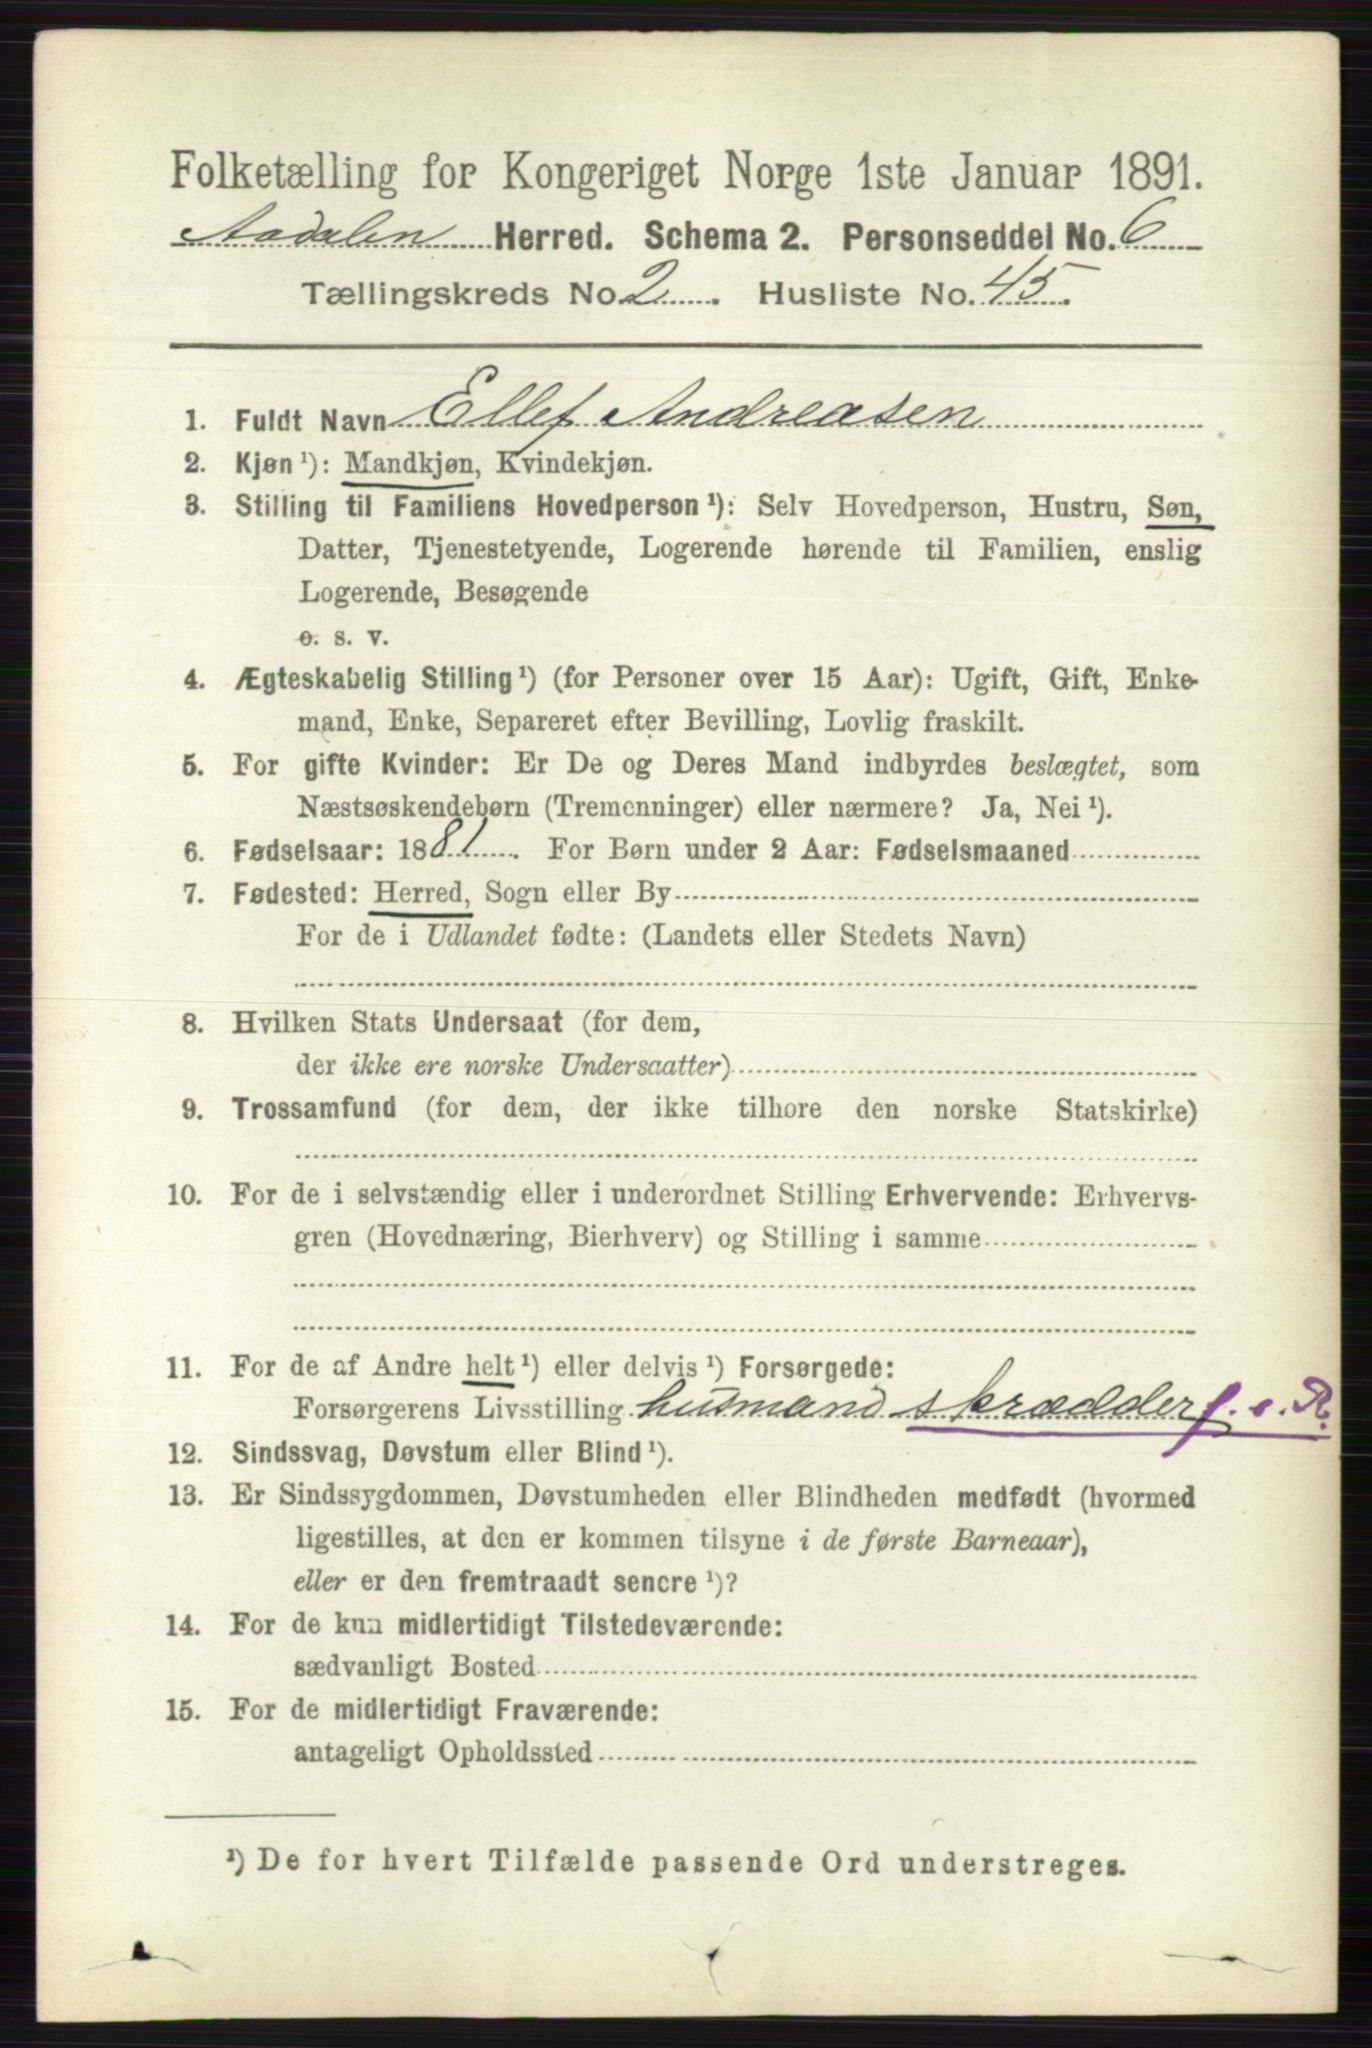 Folketælling for Kongeriget Norge 1ste Januar 1891.
Aadalen Herred. Schema 2. Personseddel No. 6
Tællingskreds No. 2. Husliste No. 45.
1. Fuldt Navn Ellef Andreasen
2. Kjøn ¹): Mandkjøn, Kvindekjøn.
3. Stilling til Familiens Hovedperson ¹): Selv Hovedperson, Hustru, Søn,
Datter, Tjenestetyende, Logerende hørende til Familien, enslig
Logerende, Besøgende
o. s. v.
4. Ægteskabelig Stilling ¹) (for Personer over 15 Aar): Ugift, Gift, Enke-
mand, Enke, Separeret efter Bevilling, Lovlig fraskilt.
5. For gifte Kvinder: Er De og Deres Mand indbyrdes beslægtet, som
Næstsøskendebørn (Tremenninger) eller nærmere? Ja, Nei ¹).
6. Fødselsaar: 1881. For Børn under 2 Aar: Fødselsmaaned
7. Fødested: Herred, Sogn eller By
For de i Udlandet fødte: (Landets eller Stedets Navn)
8. Hvilken Stats Undersaat (for dem,
der ikke ere norske Undersaatter)
9. Trossamfund (for dem, der ikke tilhøre den norske Statskirke)
10. For de i selvstændig eller i underordnet Stilling Erhvervende: Erhvervs-
gren (Hovednæring, Bierhverv) og Stilling i samme
11. For de af Andre helt ¹) eller delvis ¹) Forsørgede:
Forsørgerens Livsstilling husmand skrædder f. e. R.
12. Sindssvag, Døvstum eller Blind ¹).
13. Er Sindssygdommen, Døvstumheden eller Blindheden medfødt (hvormed
ligestilles, at den er kommen tilsyne i de første Barneaar),
eller er den fremtraadt senere ¹)?
14. For de kun midlertidigt Tilstedeværende:
sædvanligt Bosted
15. For de midlertidigt Fraværende:
antageligt Opholdssted
¹) De for hvert Tilfælde passende Ord understreges.